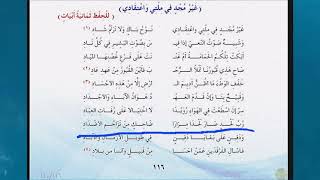 (غَيْرُ مُجْدٍ فِي مِلَّتِي وَاعْتِقَادِي)
للحفظ ثمانية أبيات
غَيْرُ مُجْدٍ فِي مِلَّتِي وَاعْتِقَادِي نَوْحُ بَاكٍ وَلَا تَرَنُّمُ شَادِ (١)
وَشَبِيهٌ صَوْتُ النَّعِيِّ إِذَا قِيـ ـسَ بِصَوْتِ الْبَشِيرِ فِي كُلِّ نَادِ
صَاحِ هَذِي قُبُورُنَا تَمْلَأُ الرَّحْـ ـبَ فَأَيْنَ الْقُبُورُ مِنْ عَهْدِ عَادِ
أَرْضِ إِلَّا مِنْ هَذِهِ الْأَجْسَادِ
وَقَبِيحٌ بِنَا وَإِنْ قَدُمَ الْعَهْـ ـدُ هَوَانُ الْآبَاءِ وَالْأَجْدَادِ
سِرْ إِنِ اسْطَعْتَ فِي الْهَوَاءِ رُوَيْدًا لَا اخْتِيَالًا عَلَى رُفَاتِ الْعِبَادِ
رُبَّ لَحْدٍ قَدْ صَارَ لَحْدًا مِرَارًا ضَاحِكٍ مِنْ تَزَاحُمِ الْأَضْدَادِ
وَدَفِينٍ عَلَى بَقَايَا دَفِينٍ فِي طَوِيلِ الْأَزْمَانِ
فَاسْأَلِ الْفَرْقَدَيْنِ عَمَّنْ أَحَسَّا مِنْ قَبِيلٍ وَآنَسَا مِنْ بِلَادِ
١١٦